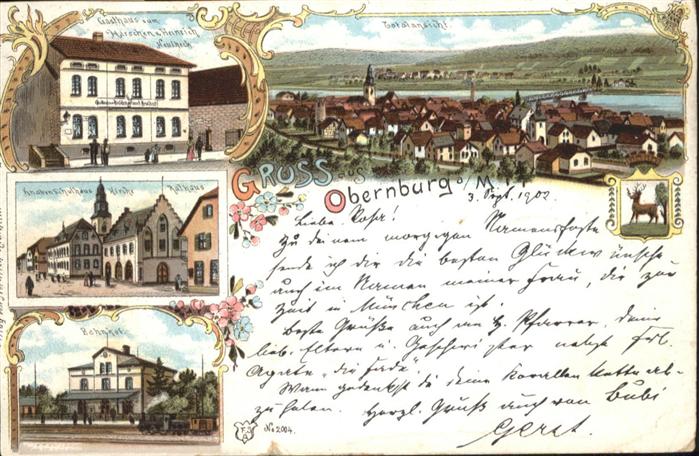 Gasthaus zum
Hirschen v. Heinrich
Totalansicht.
Knabenschulhaus Kirche Rathaus
Bahnhof.
GRUSS aus
Obernburg a/M.
3. Sept. 1902
Liebe Rosa!
Zu deinem morgigen Namensfeste
sende ich dir die besten Glückwünsche
auch im Namen meiner Frau, die zur
Zeit in München ist.
Beste Grüße auch an H. Pfarrer, deine
lieb. Eltern u. Geschwister nebst Frl.
Agate
Wann gedenkst du deine Korallen Kette ab-
zuholen. Herzl. Gruß auch von Bubi
Gerst.
No 2004.